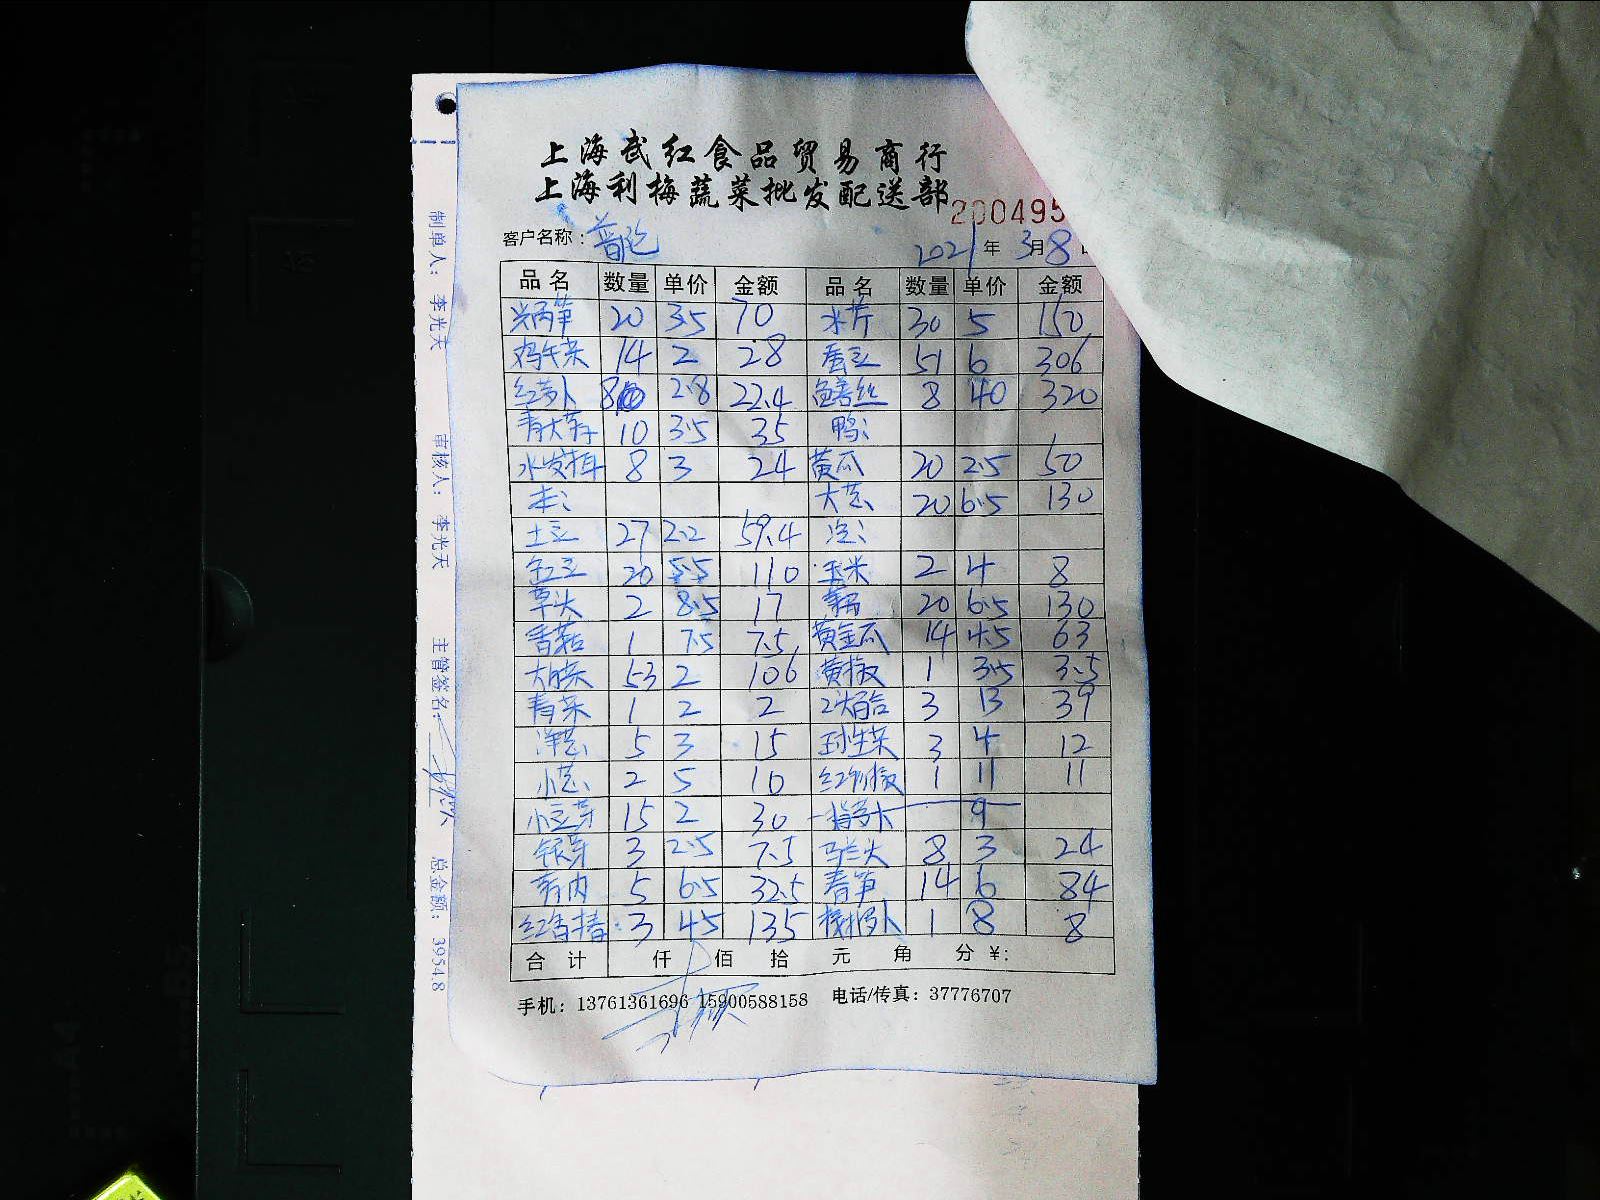 上海武红食品贸易商行
上海利梅蔬菜批发配送部
200495
客户名称：
2021年3月8
品名 数量 单价 金额 品名 数量 单价 金额
20 3.5 70 水芹 30 5 150
鸡毛菜 14 2 28 蚕豆 51 6 306
红萝卜 8 2.8 22.4 鳝丝 8 40 320
10 3.5 35 鸭：
水发木耳 8 3 24 黄瓜 20 2.5 50
本： 大葱 20 6.5 130
土豆 27 2.2 59.4
20 5.5 110 玉米 2 4 8
草头 2 8.5 17 20 6.5 130
香菇 1 7.5 7.5 黄金瓜 14 4.5 63
大白菜 53 2 106 黄椒 1 3.5 3.5
青菜 1 2 2 3 13 39
洋葱 5 3 15 球生菜 3 4 12
小葱 2 5 10 1 11 11
小豆芽 15 2 30 9
银芽 3 2.5 7.5 马兰头 8 3 24
5 6.5 32.5 春笋 14 6 84
红香椿 3 45 135 1 8 8
合计 仟 佰 拾 元 角 分 ¥：
手机：13761361696 15900588158 电话/传真：37776707
制单人： 李光天 审核人： 李光天 主管签名： 总金额： 3954.8